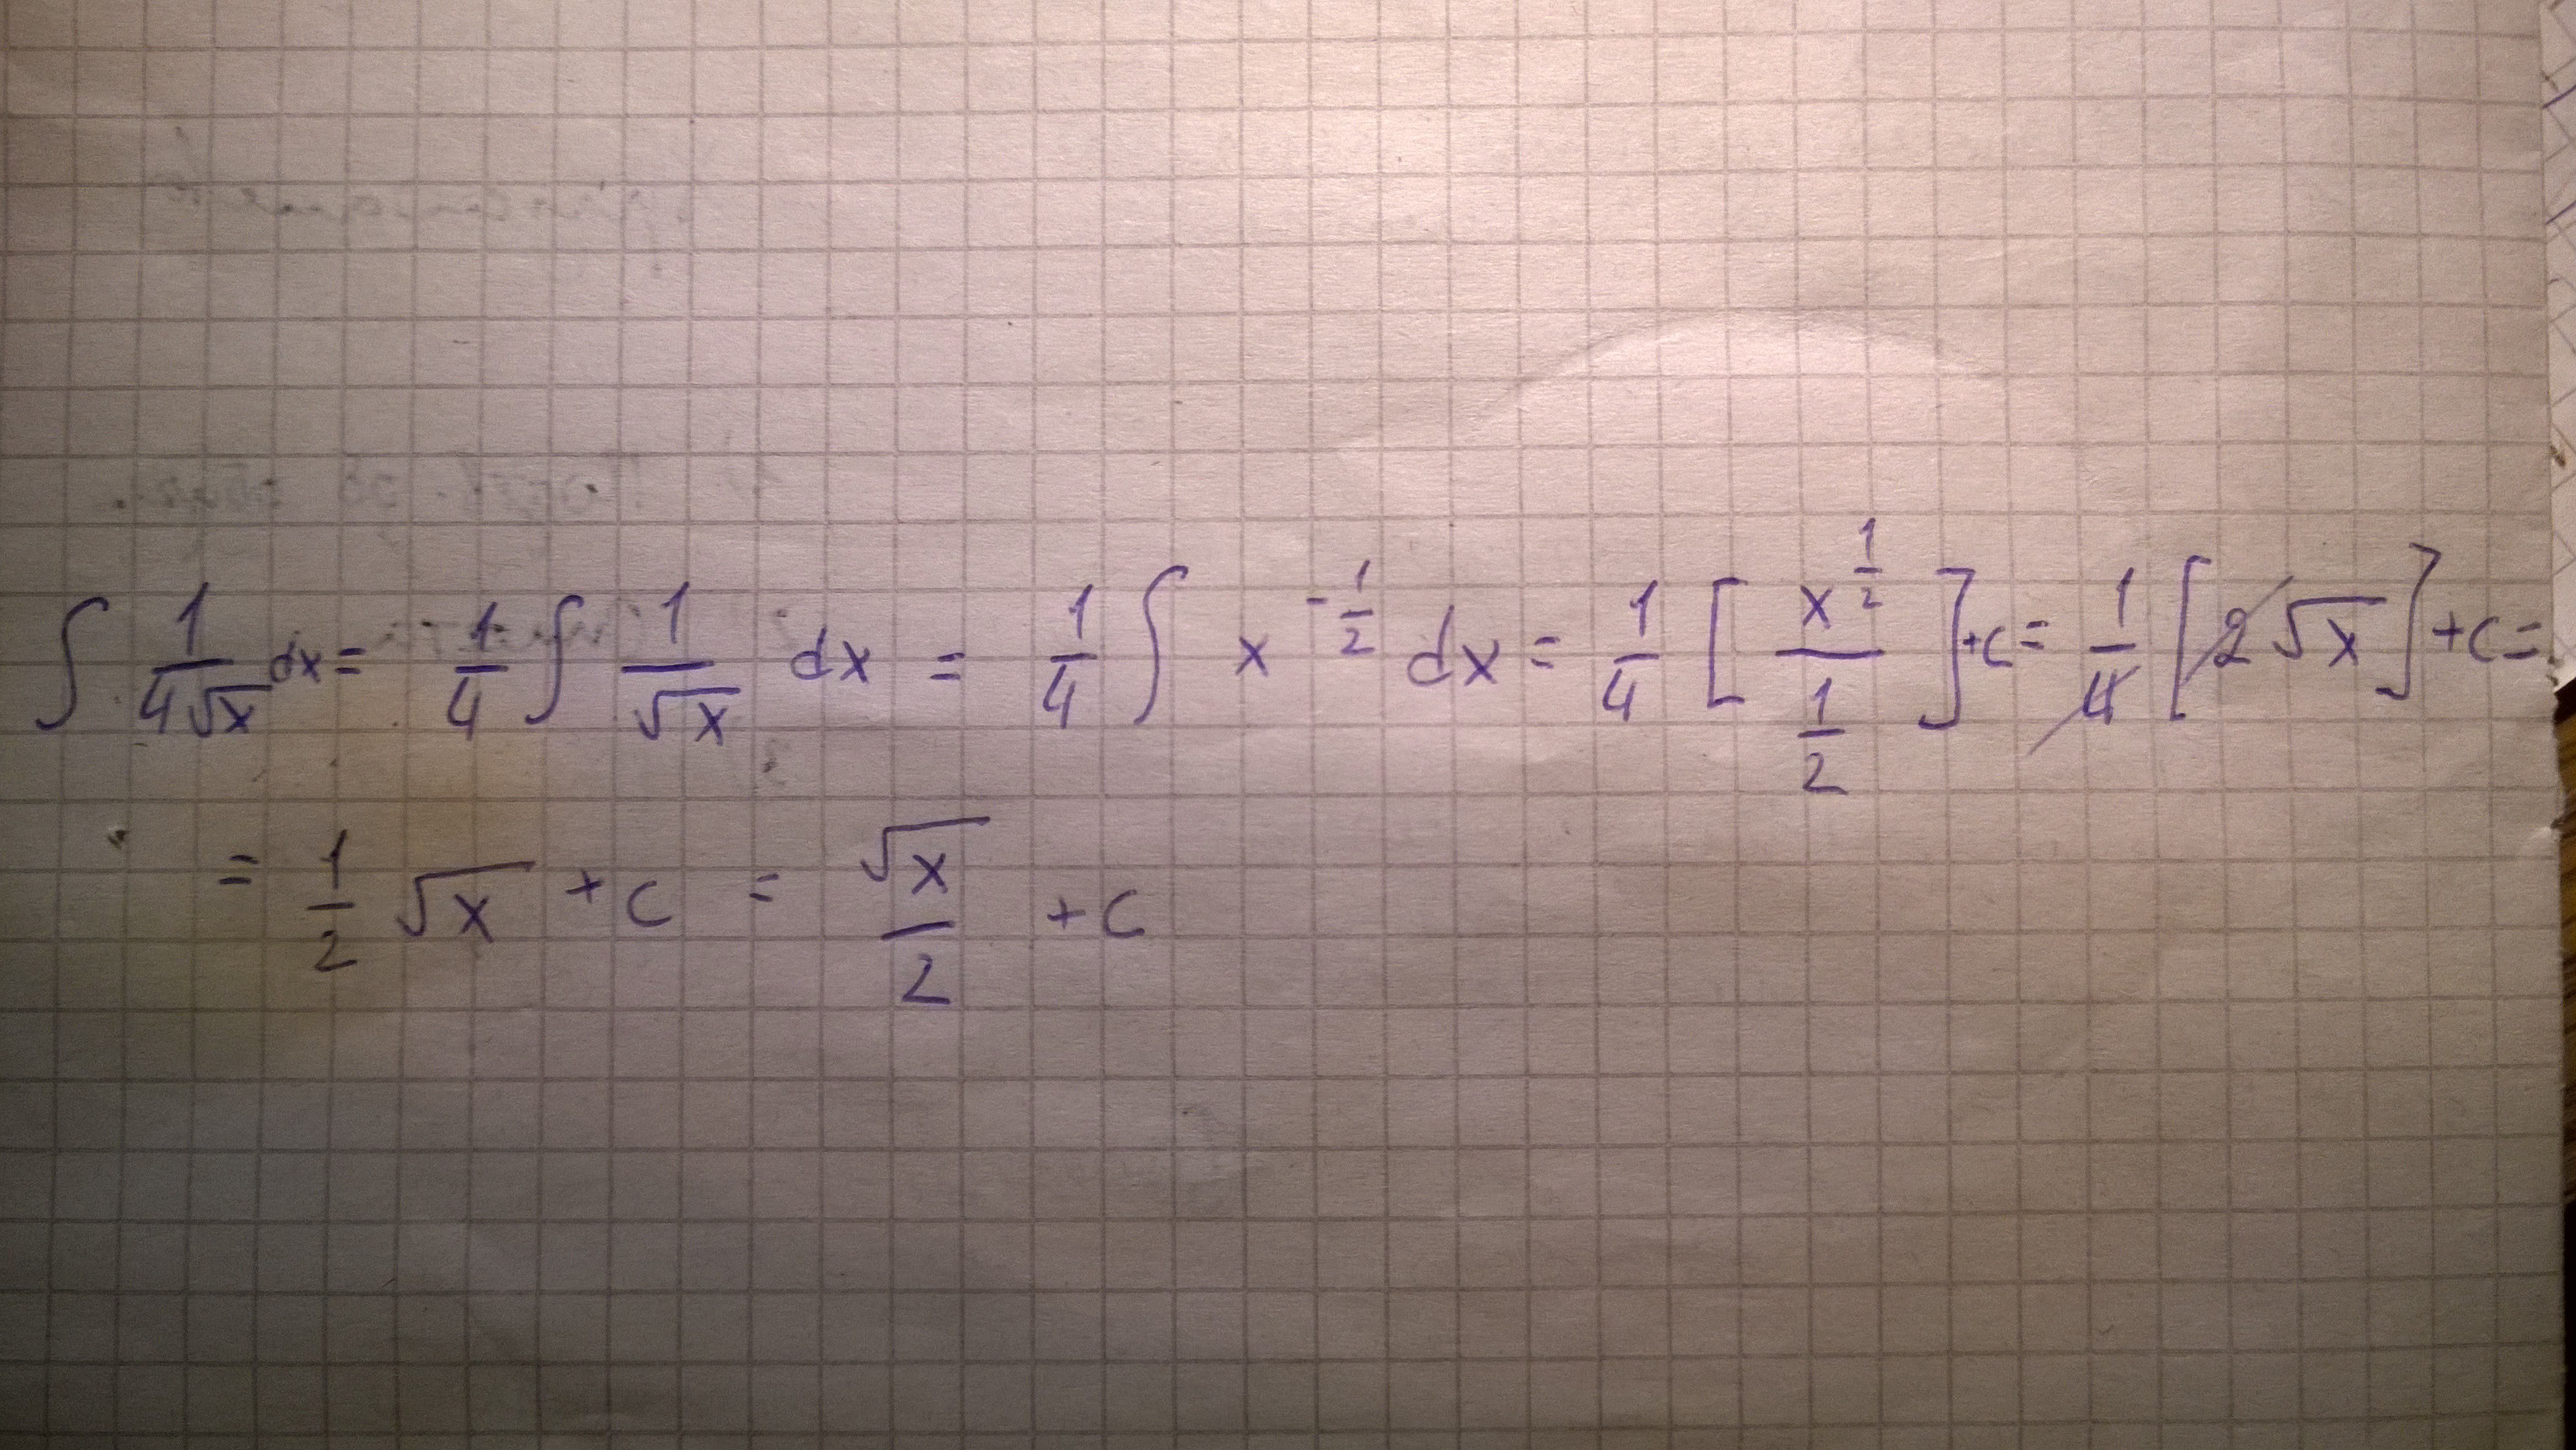 ∫ 1/(4√x) dx = 1/4 ∫ 1/√x dx = 1/4 ∫ x^(-1/2) dx = 1/4 [x^(1/2) / (1/2)] + c = 1/4 [2√x] + c =
= 1/2 √x + c = √x/2 + c